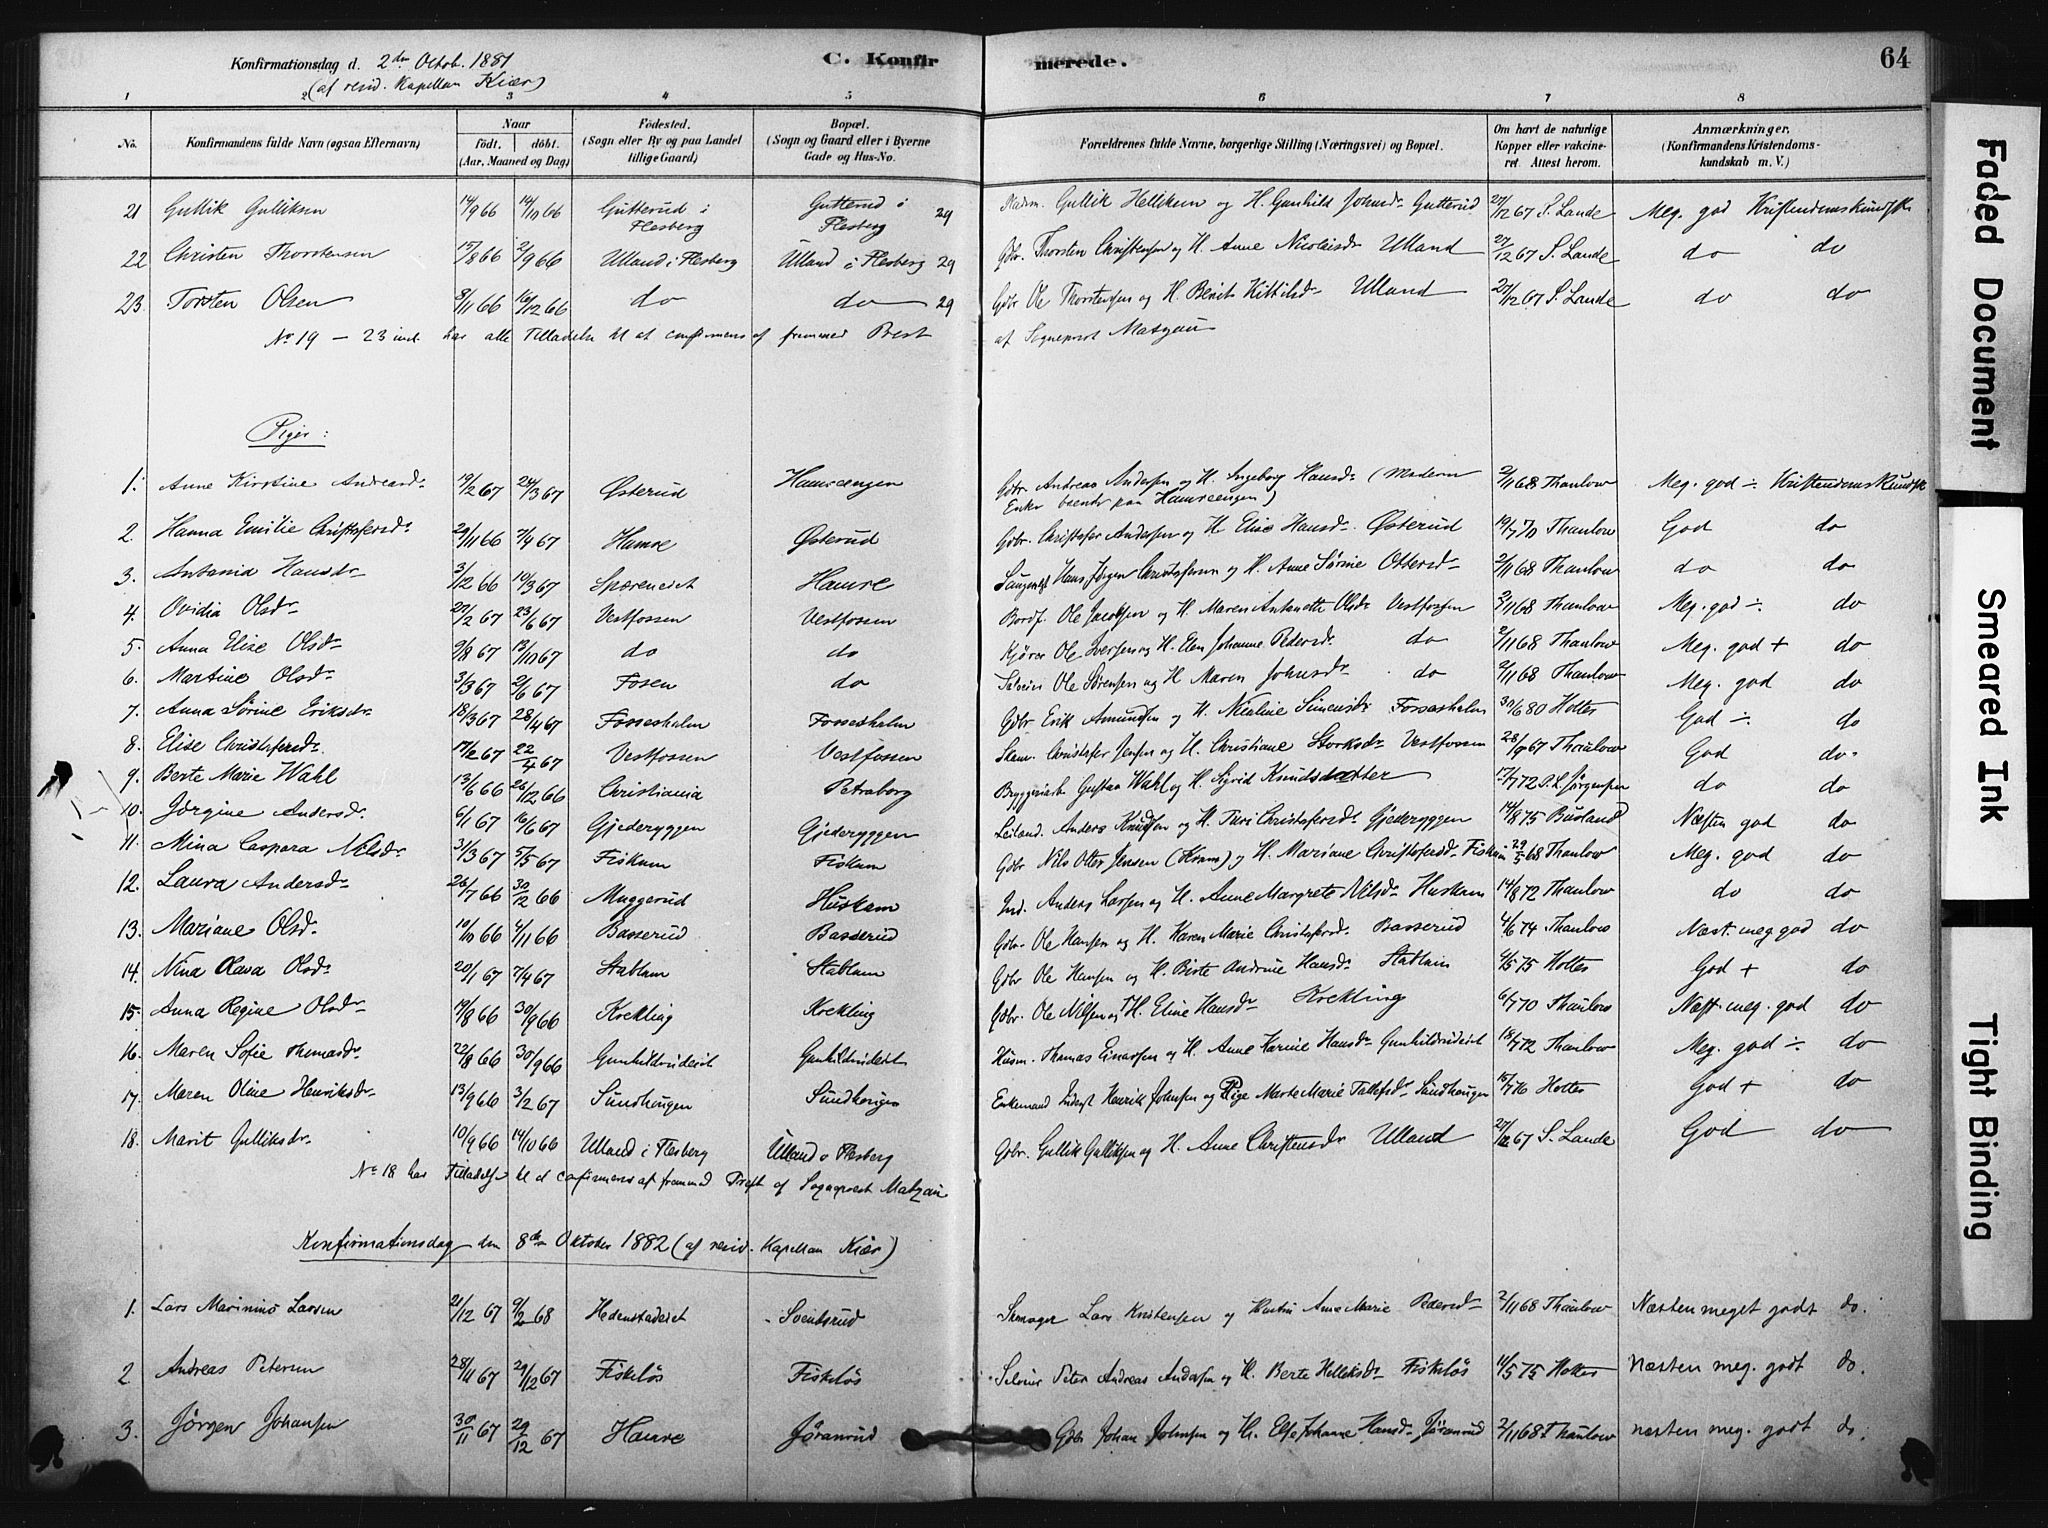 Konfirmationsdag d. 2den Octob. 1881 C. Konfirmerede. 64
(af resid. Kapellan Kiær)
1 2 3 4 5 6 7 8
No. Konfirmandens fulde Navn (ogsaa Efternavn) Naar födt. döbt. (Aar, Maaned og Dag) Födested. (Sogn eller By og paa Landet tillige Gaard) Bopæl. (Sogn og Gaard eller i Byerne Gade og Hus-No. Forældrenes fulde Navne, borgerlige Stilling (Næringsvei) og Bopæl. Om havt de naturlige Kopper eller vakcineret. Attest herom. Anmærkninger. (Konfirmandens Kristendomskundskab m. V.)
21 Gullik Gulliksen 14/9 66 14/10 66 Gutterud i Flesberg Gutterud i Flesberg 29 Gullik Helliksen og H. Gunhild Johnsdr Gutterud 27/12 67 S. Lande Meg. god Kristendomskundsk
22 Christen Thorstensen 15/8 66 2/9 66 Ulland i Flesberg Ulland i Flesberg 29 Gbr. Thorsten Christensen og H. Anne Nicolaisdr Ulland 27/12 67 S. Lande do do
23. Torsten Olsen 8/11 66 16/12 66 do do 29 Gbr Ole Thorstensen og H. Berit Kittilsdr Ulland 27/12 67 S. Lande do do
No 19 – 23 incl. har alle Tilladelse til at confirmeres af fremmed Prest af Sogneprest Matzau
Piger:
1. Anne Kirstine Andreasdr 19/2 67 24/3 67 Østerud Hamreengen Gbr. Andreas Andersen og H. Ingeborg Hansdr (Moderen Enke boende paa Hamreengen) 2/11 68 Thaulow Meg. god ÷ Kristendomskundsk
2. Hanna Emilie Christofersdr 29/11 66 7/4 67 Hamre Østerud Gbr. Christofer Andersen og H. Eline Hansdr Østerud 19/7 70 Thaulow God do
3. Antonia Hansdr 3/12 66 10/3 67 Sporeneiet Hamre Hans Jørgen Christofersen og H. Anne Sørine Ottersdr 2/11 68 Thaulow do do
4. Ovidia Olsdr 27/2 67 23/6 67 Vestfossen Vestfossen Bordf. Ole Jacobsen og H. Maren Antonette Olsdr Vestfossen 2/11 68 Thaulow Meg. god ÷ do
5. Anna Elise Olsdr 9/8 67 13/10 67 do do Kjører Ole Iversen og H. Elen Johanne Pedersdr do 2/11 68 Thaulow Meg. god + do
6. Martine Olsdr 3/3 67 2/6 67 Fosen do Ole Sørensen og H Maren Johnsdr do 2/11 68 Thaulow Meg. god do
7. Anna Sørine Eriksdr 18/3 67 28/4 67 Fossesholm Fossesholm Gbr. Erik Amundsen og H. Nicoline Simensdr Fossesholm 30/6 80 Holter God ÷ do
8. Elise Christofersdr. 17/2 67 22/4 67 Vestfossen Vestfossen Skom. Christofer Jensen og H. Christiane Storksdr Vestfossen 28/9 67 Thaulow God do
9. Berte Marie Wahl 13/6 66 26/12 66 Christiania Petraborg Bryggeriarb. Gustav Wahl og H. Sigrid Knudsdatter 17/7 72 P. L. Jørgensen do do
10. Jørgine Andersdr. 6/1 67 16/6 67 Gjederyggen Gjederyggen Leiland. Anders Knudsen og H. Turi Christofersdr Gjederyggen 14/8 75 Busland Næsten god do
11. Mina Caspara Nilsdr 31/3 67 5/5 67 Fiskum Fiskum Gbr Nils Otter Jensen (Kram) og H. Mariane Christofersdr Fiskum 29/5 68 Thaulow Meg. god do
12. Laura Andersdr 26/7 66 30/12 66 Muggerud Huskam Ind. Anders Larsen og H. Anne Margrete Nilsdr Huskam 14/8 72 Thaulow do do
13. Mariane Olsdr. 10/10 66 4/11 66 Basserud Basserud Gbr. Ole Hansen og H. Karen Marie Christofersdr. Basserud 4/6 74 Thaulow Næst. meg god do
14. Nina Olava Olsdr 20/1 67 7/4 67 Stablum Stablum Gbr Ole Hansen og H. Birte Andrine Hansdr Stablum 4/5 75 Holter God + do
15. Anna Regine Olsdr 19/8 66 30/9 66 Krekling Krekling Gbr. Ole Nilsen og H. Eline Hansdr Krekling 6/7 70 Thaulow Næst. meg. god do
16. Maren Sofie Thomasdr 22/8 66 30/9 66 Gunhildrudeiet Gunhildrudeiet Husm. Thomas Einarsen og H. Anne Karine Hansdr Gunhildrudeiet 18/7 72 Thaulow Meg. god ÷ do
17. Maren Oline Henriksdr 13/9 66 3/2 67 Sundhaugen Sundhaugen Enkemand Inderst Henrik Johnsen og Pige Marte Marie Tollefsdr Sundhaugen 15/7 76 Holter God + do
18. Marit Gulliksdr. 10/9 66 14/10 66 Ulland i Flesberg Ulland i Flesberg Gbr. Gullik Gulliksen og H. Anne Christensdr Ulland 27/12 67 S. Lande God do
No 18 har Tilladelse til at confirmeres af fremmed Prest af Sogneprest Matzau
Konfirmationsdag den 8de Oktober 1882 (af resid. Kapellan Kiær)
1. Lars Marinius Larsen 21/12 67 9/2 68 Hedenstadeiet Svendsrud Lars Kristensen og Hustru Anne Marie Pedersdr 2/11 68 Thaulow Næsten meget godt do.
2 Andreas Petersen 28/11 67 29/12 67 Fiskeløs Fiskeløs Peter Andreas Andersen og H. Berte Helleksdr Fiskeløs 11/5 75 Holter Næsten meg. godt do.
3. Jørgen Johansen 30/11 67 29/12 67 Hamre Jøranrud Gbr Johan Johnsen og H. Else Johanne Hansdr Jøranrud 2/11 68 Thaulow næsten meg. godt do.
Faded Document
Smeared Ink
Tight Binding